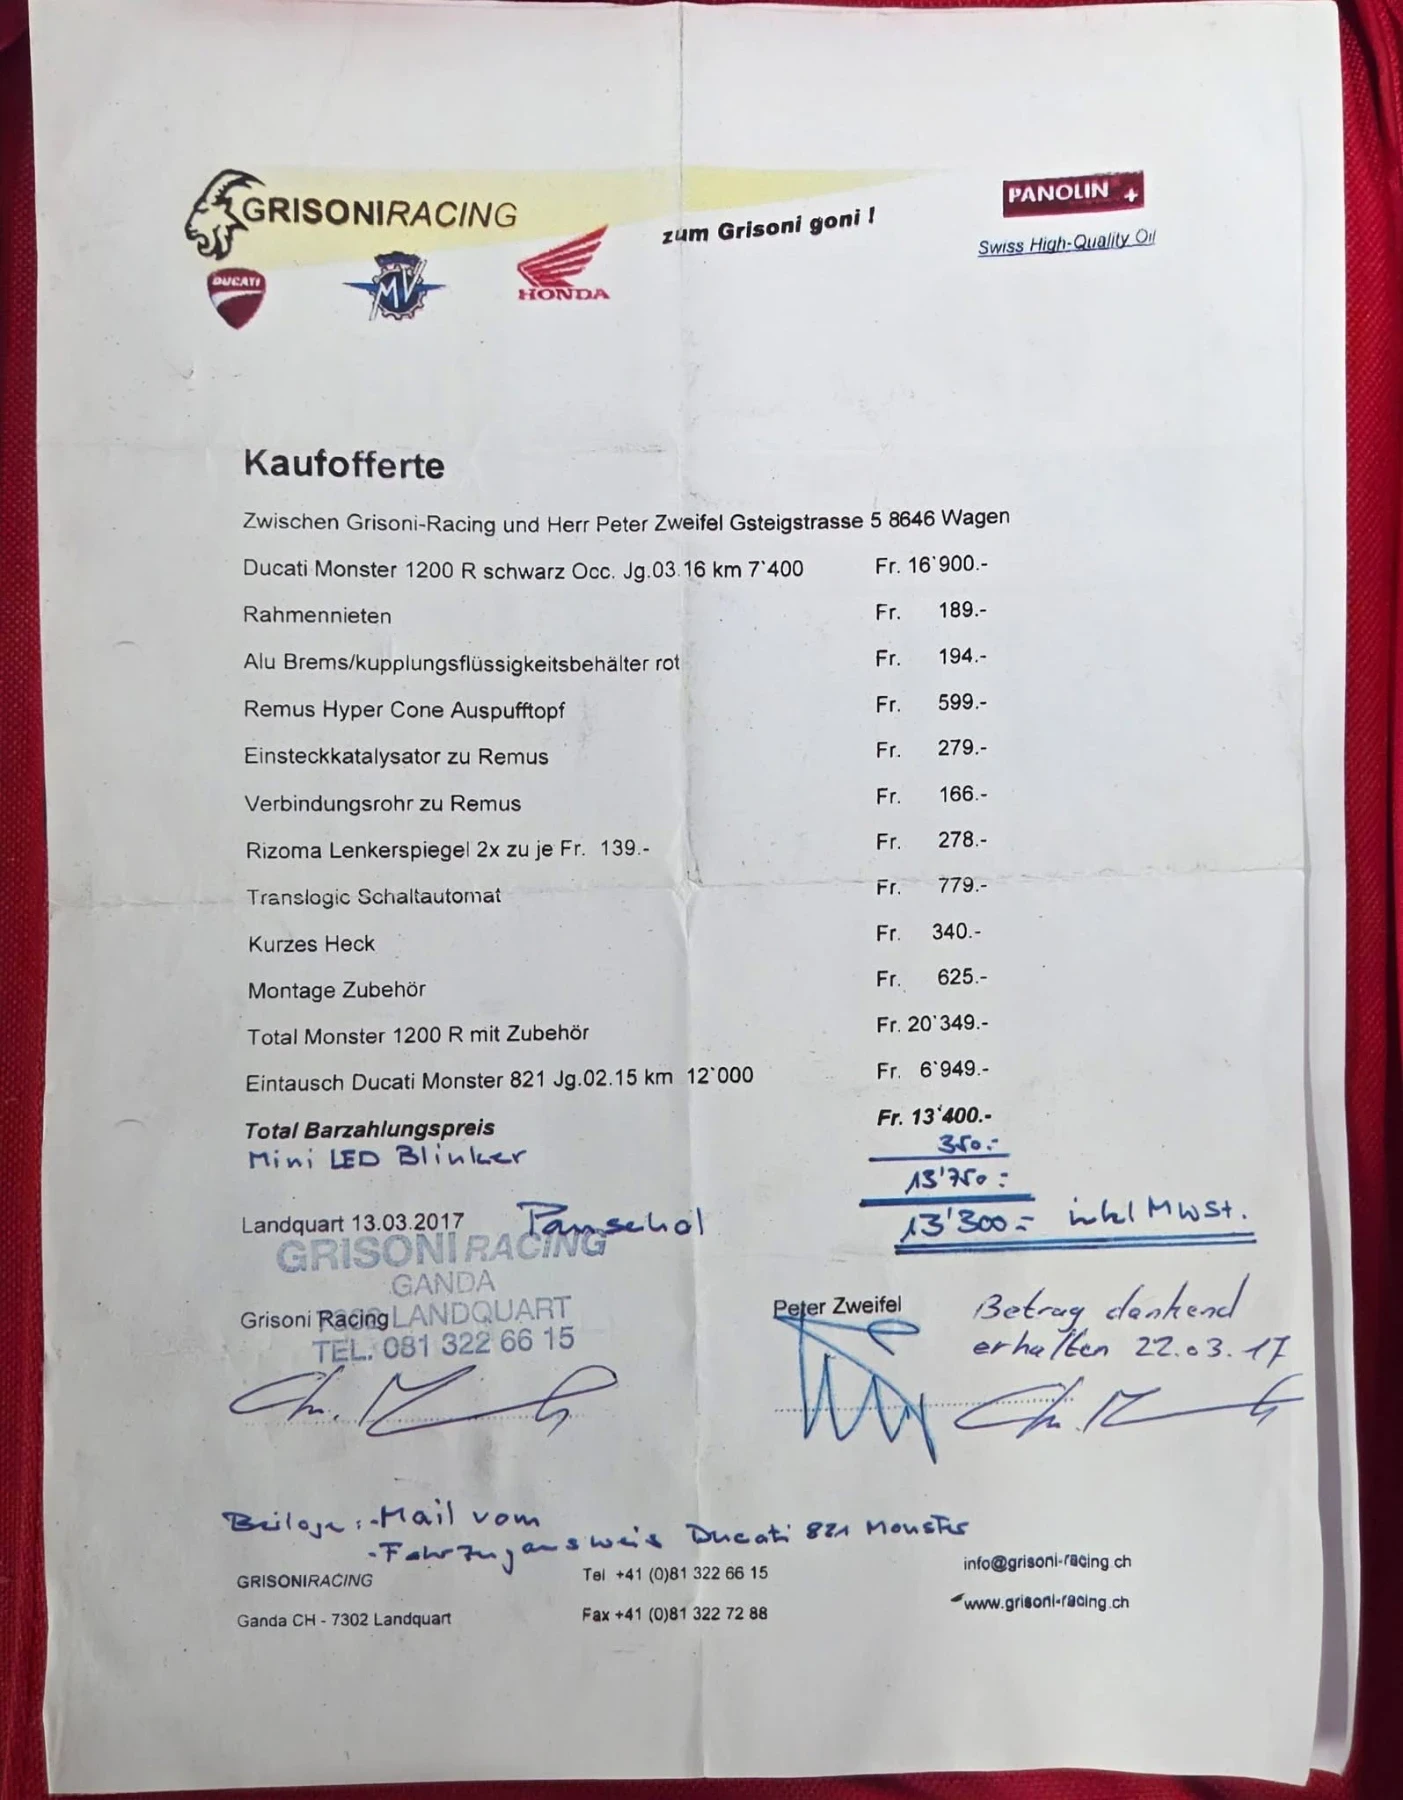 GRISONIRACING
zum Grisoni goni !
PANOLIN +
Swiss High-Quality Oil
DUCATI
MV
HONDA
Kaufofferte
Zwischen Grisoni-Racing und Herr Peter Zweifel Gsteigstrasse 5 8646 Wagen
Ducati Monster 1200 R schwarz Occ. Jg.03.16 km 7`400 Fr. 16`900.-
Rahmennieten Fr. 189.-
Alu Brems/kupplungsflüssigkeitsbehälter rot Fr. 194.-
Remus Hyper Cone Auspufftopf Fr. 599.-
Einsteckkatalysator zu Remus Fr. 279.-
Verbindungsrohr zu Remus Fr. 166.-
Rizoma Lenkerspiegel 2x zu je Fr. 139.- Fr. 278.-
Translogic Schaltautomat Fr. 779.-
Kurzes Heck Fr. 340.-
Montage Zubehör Fr. 625.-
Total Monster 1200 R mit Zubehör Fr. 20`349.-
Eintausch Ducati Monster 821 Jg.02.15 km 12`000 Fr. 6`949.-
Total Barzahlungspreis Fr. 13`400.-
Mini LED Blinker 350.-
13'750.-
Landquart 13.03.2017 Pauschal 13'300.- inkl MwSt.
GRISONIRACING
GANDA
Grisoni Racing LANDQUART
TEL. 081 322 66 15
Peter Zweifel
Betrag dankend
erhalten 22.03.17
Beilage: - Mail vom
- Fahrzeugausweis Ducati 821 Monster
GRISONIRACING Tel +41 (0)81 322 66 15 info@grisoni-racing.ch
Ganda CH - 7302 Landquart Fax +41 (0)81 322 72 88 www.grisoni-racing.ch